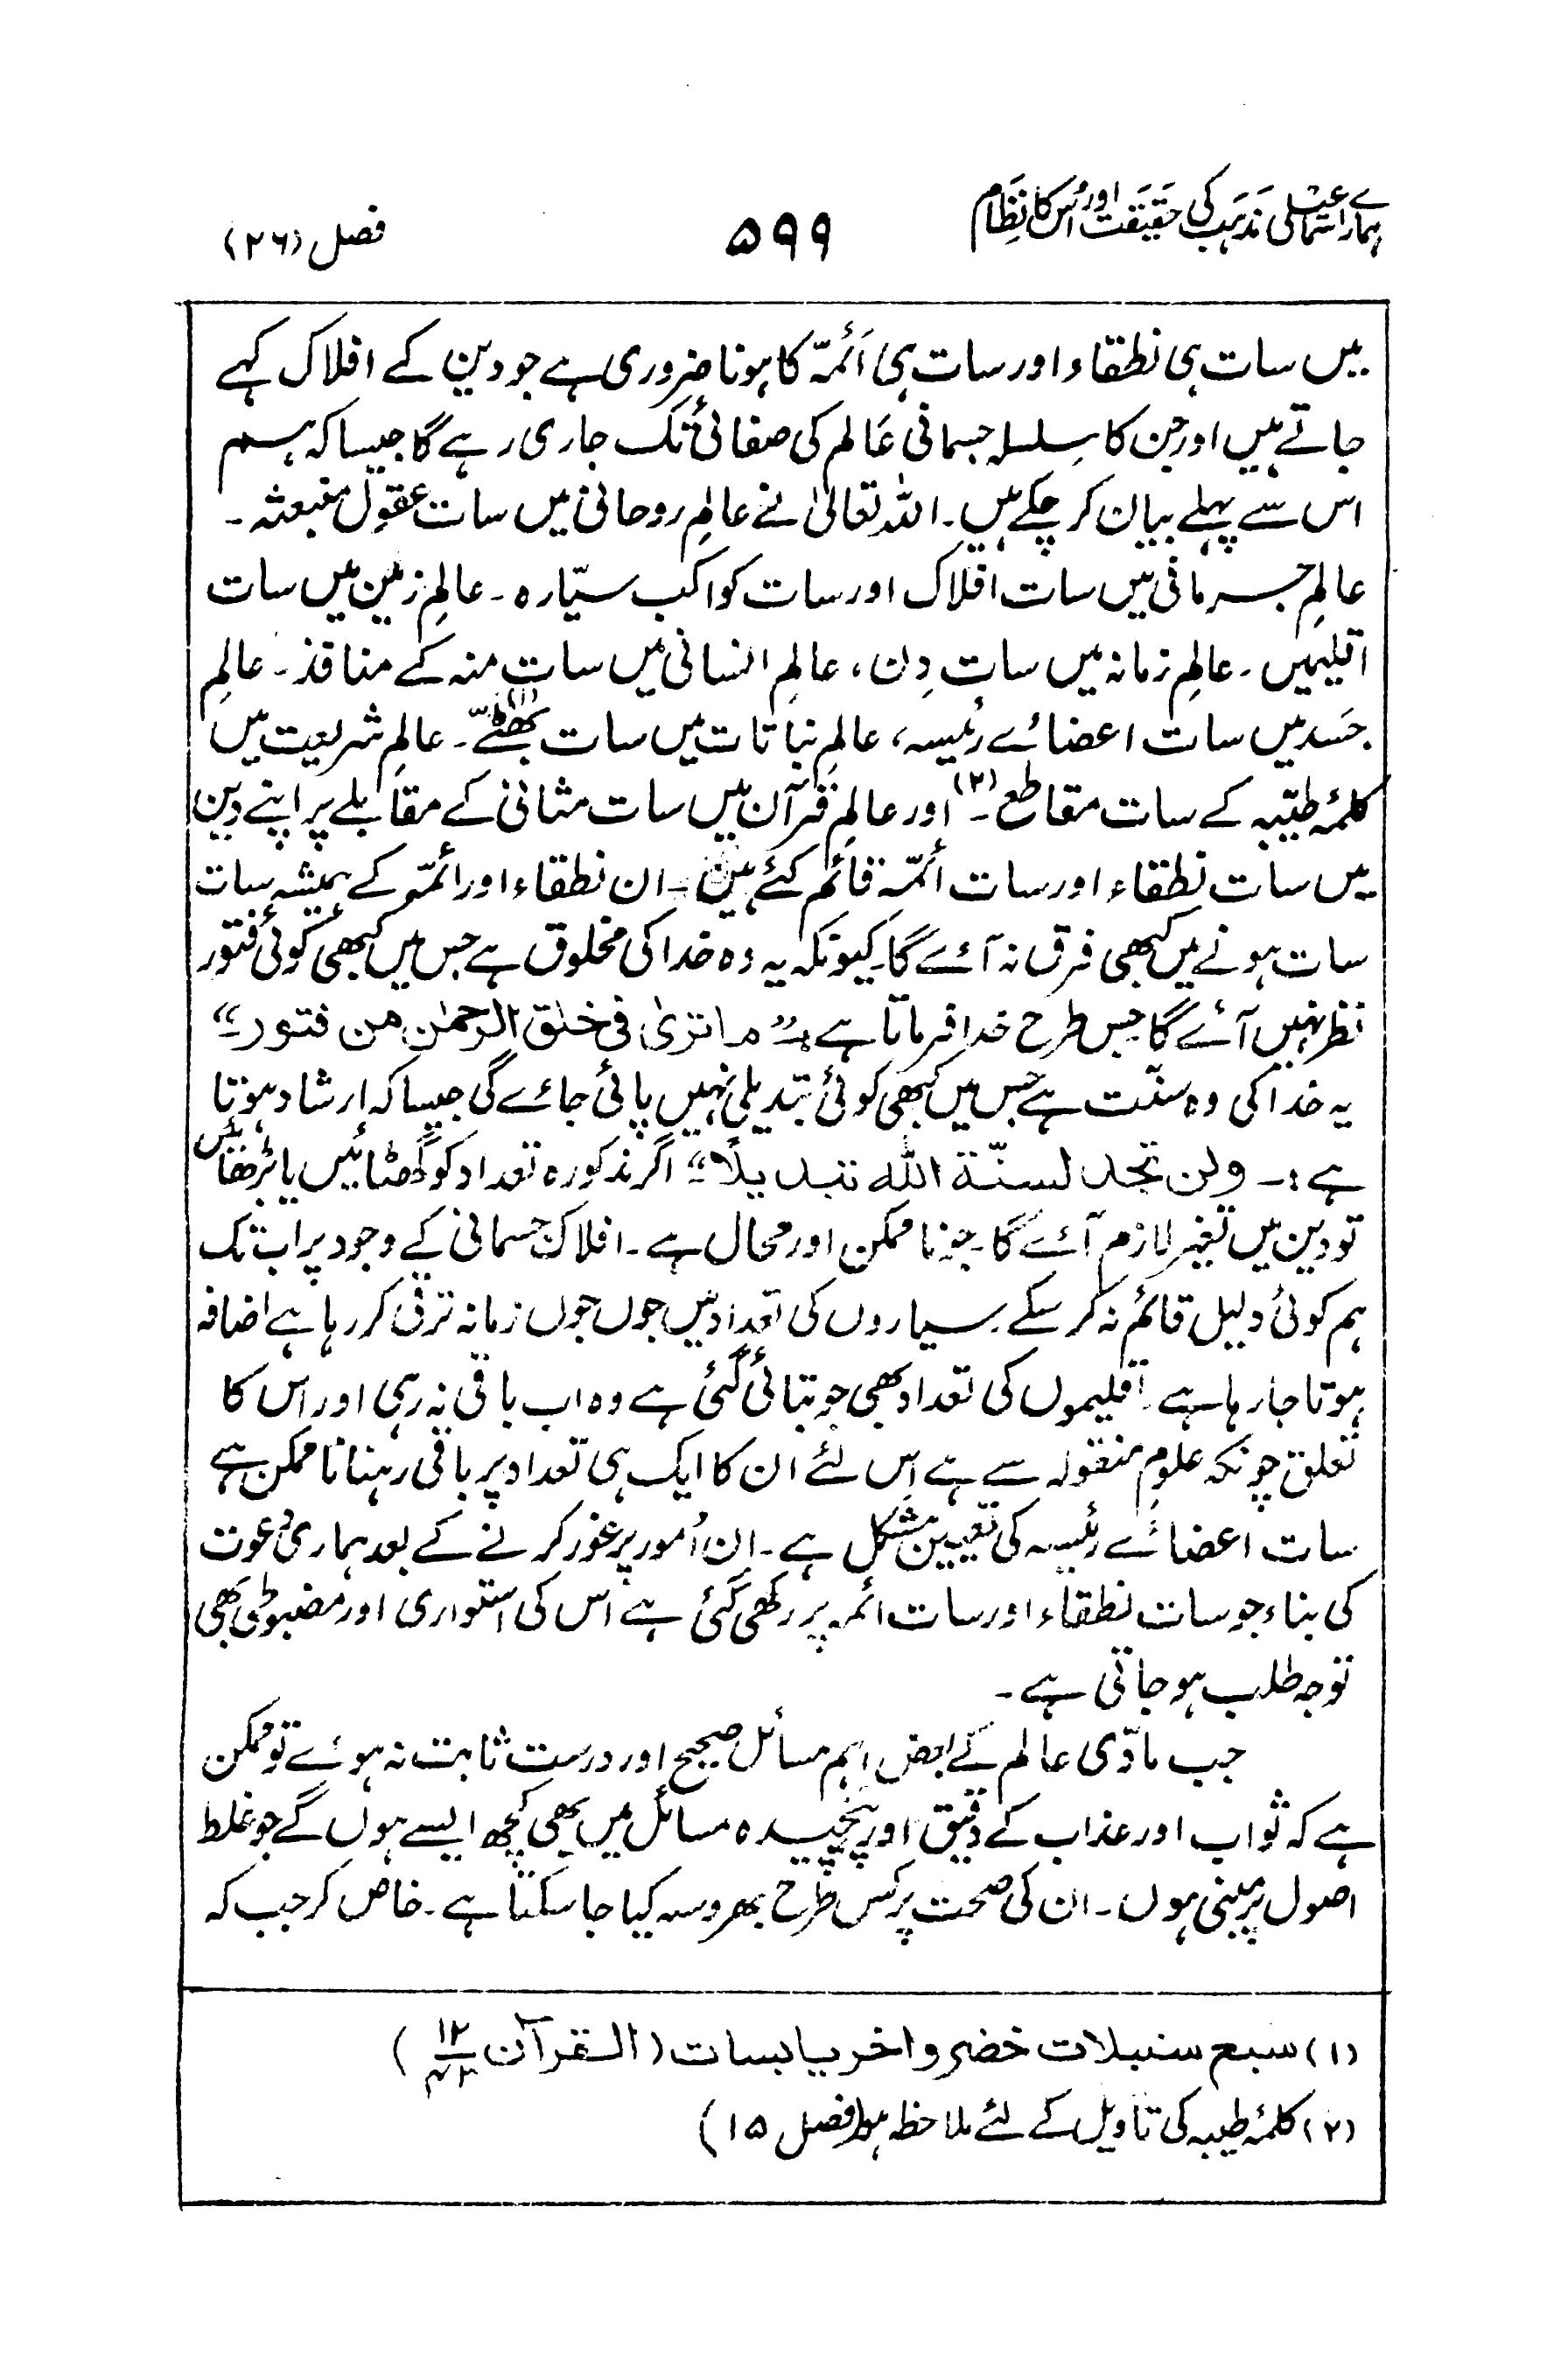 ہمارے اسماعیلی مذہب کی حقیقت اور اُس کا نِظَام
۵۹۹
فصل (۲۶)
میں سات ہی نطقاء اور سات ہی اَئمّہ کا ہونا ضروری ہے جو دین کے افلاک کہے
جاتے ہیں اور جن کا سِلسلہ جسمانی عَالم کی صفائی تک جاری رہے گا جیسا کہ ہم
اس سے پہلے بیان کر چکے ہیں۔ اللہ تعالیٰ نے عالمِ روحانی میں سات عقول منبعثہ۔
عالمِ جسرمانی میں سات افلاک اور سات کواکب سیّارہ۔ عالمِ زمین میں سات
اقلیمیں۔ عالمِ زمانہ میں سات دِن، عالمِ انسانی میں سات منہ کے منافذ۔ عالمِ
جَسد میں سات اعضائے رئیسہ، عالمِ نباتات میں سات بھٹّے(۱)۔ عالمِ شریعت میں
کلمۂ طیّبہ کے سات مقاطع۔(۲) اور عالمِ قرآن میں سات مثانی کے مقابلے پر اپنے دین
میں سات نطقاء اور سات أئمّہ قائم کئے ہیں۔ ان نطقاء اور ائمّہ کے ہمیشہ سات
سات ہونے میں کبھی فرق نہ آئے گا۔ کیونکہ یہ وہ خدا کی مخلوق ہے جس میں کبھی کوئی فتور
نظر نہیں آئے گا جس طرح خدا فرماتا ہے:۔ “ما تریٰ فی خلق الرحمٰن من فتور”
یہ خدا کی وہ سنّت ہے جس میں کبھی کوئی تبدیلی نہیں پائی جائے گی جیسا کہ اِرشاد ہوتا
ہے:۔ ولن تجد لسنّة اللّٰه تبديلًا” اگر مذکورہ تعداد کو گھٹائیں یا بڑھائیں
تو دین میں تغیر لازم آئے گا۔ جو ناممکن اور محال ہے۔ افلاک جسمانی کے وجود پر اب تک
ہم کوئی دلیل قائم نہ کر سکے۔ سیاروں کی تعداد میں جوں جوں زمانہ ترقی کر رہا ہے اضافہ
ہوتا جا رہا ہے۔ اقلیموں کی تعداد بھی جو بتائی گئی ہے وہ اب باقی نہ رہی اور اس کا
تعلق چونکہ علومِ منقولہ سے ہے اِس لئے ان کا ایک ہی تعداد پر باقی رہنا نا ممکن ہے
سات اعضائے رئیسہ کی تعیین مشکل ہے۔ ان اُمور پر غور کرنے کے بعد ہماری دعوت
کی بناء جو سات نطقاء اور سات ائمہ پر رکھی گئی ہے اس کی استواری اور مضبوطی بھی
توجہ طلب ہو جاتی ہے۔
جب مادّی عالم کے بعض اہم مسائل صحیح اور درست ثابت نہ ہوئے تو ممکن
ہے کہ ثواب اور عذاب کے دقیق اور پیچیدہ مسائل میں بھی کچھ ایسے ہوں گے جو غلط
اصول پر مبنی ہوں۔ ان کی صحت پر کس طرح بھروسہ کیا جا سکتا ہے۔ خاص کر جب کہ
(۱) سبع سنبلات خضر واخر یابسات (القرآن ۱۲/۴۳)
(۲) کلمۂ طیبہ کی تاویل کے لئے ملاحظہ ہو (فصل ۱۵)